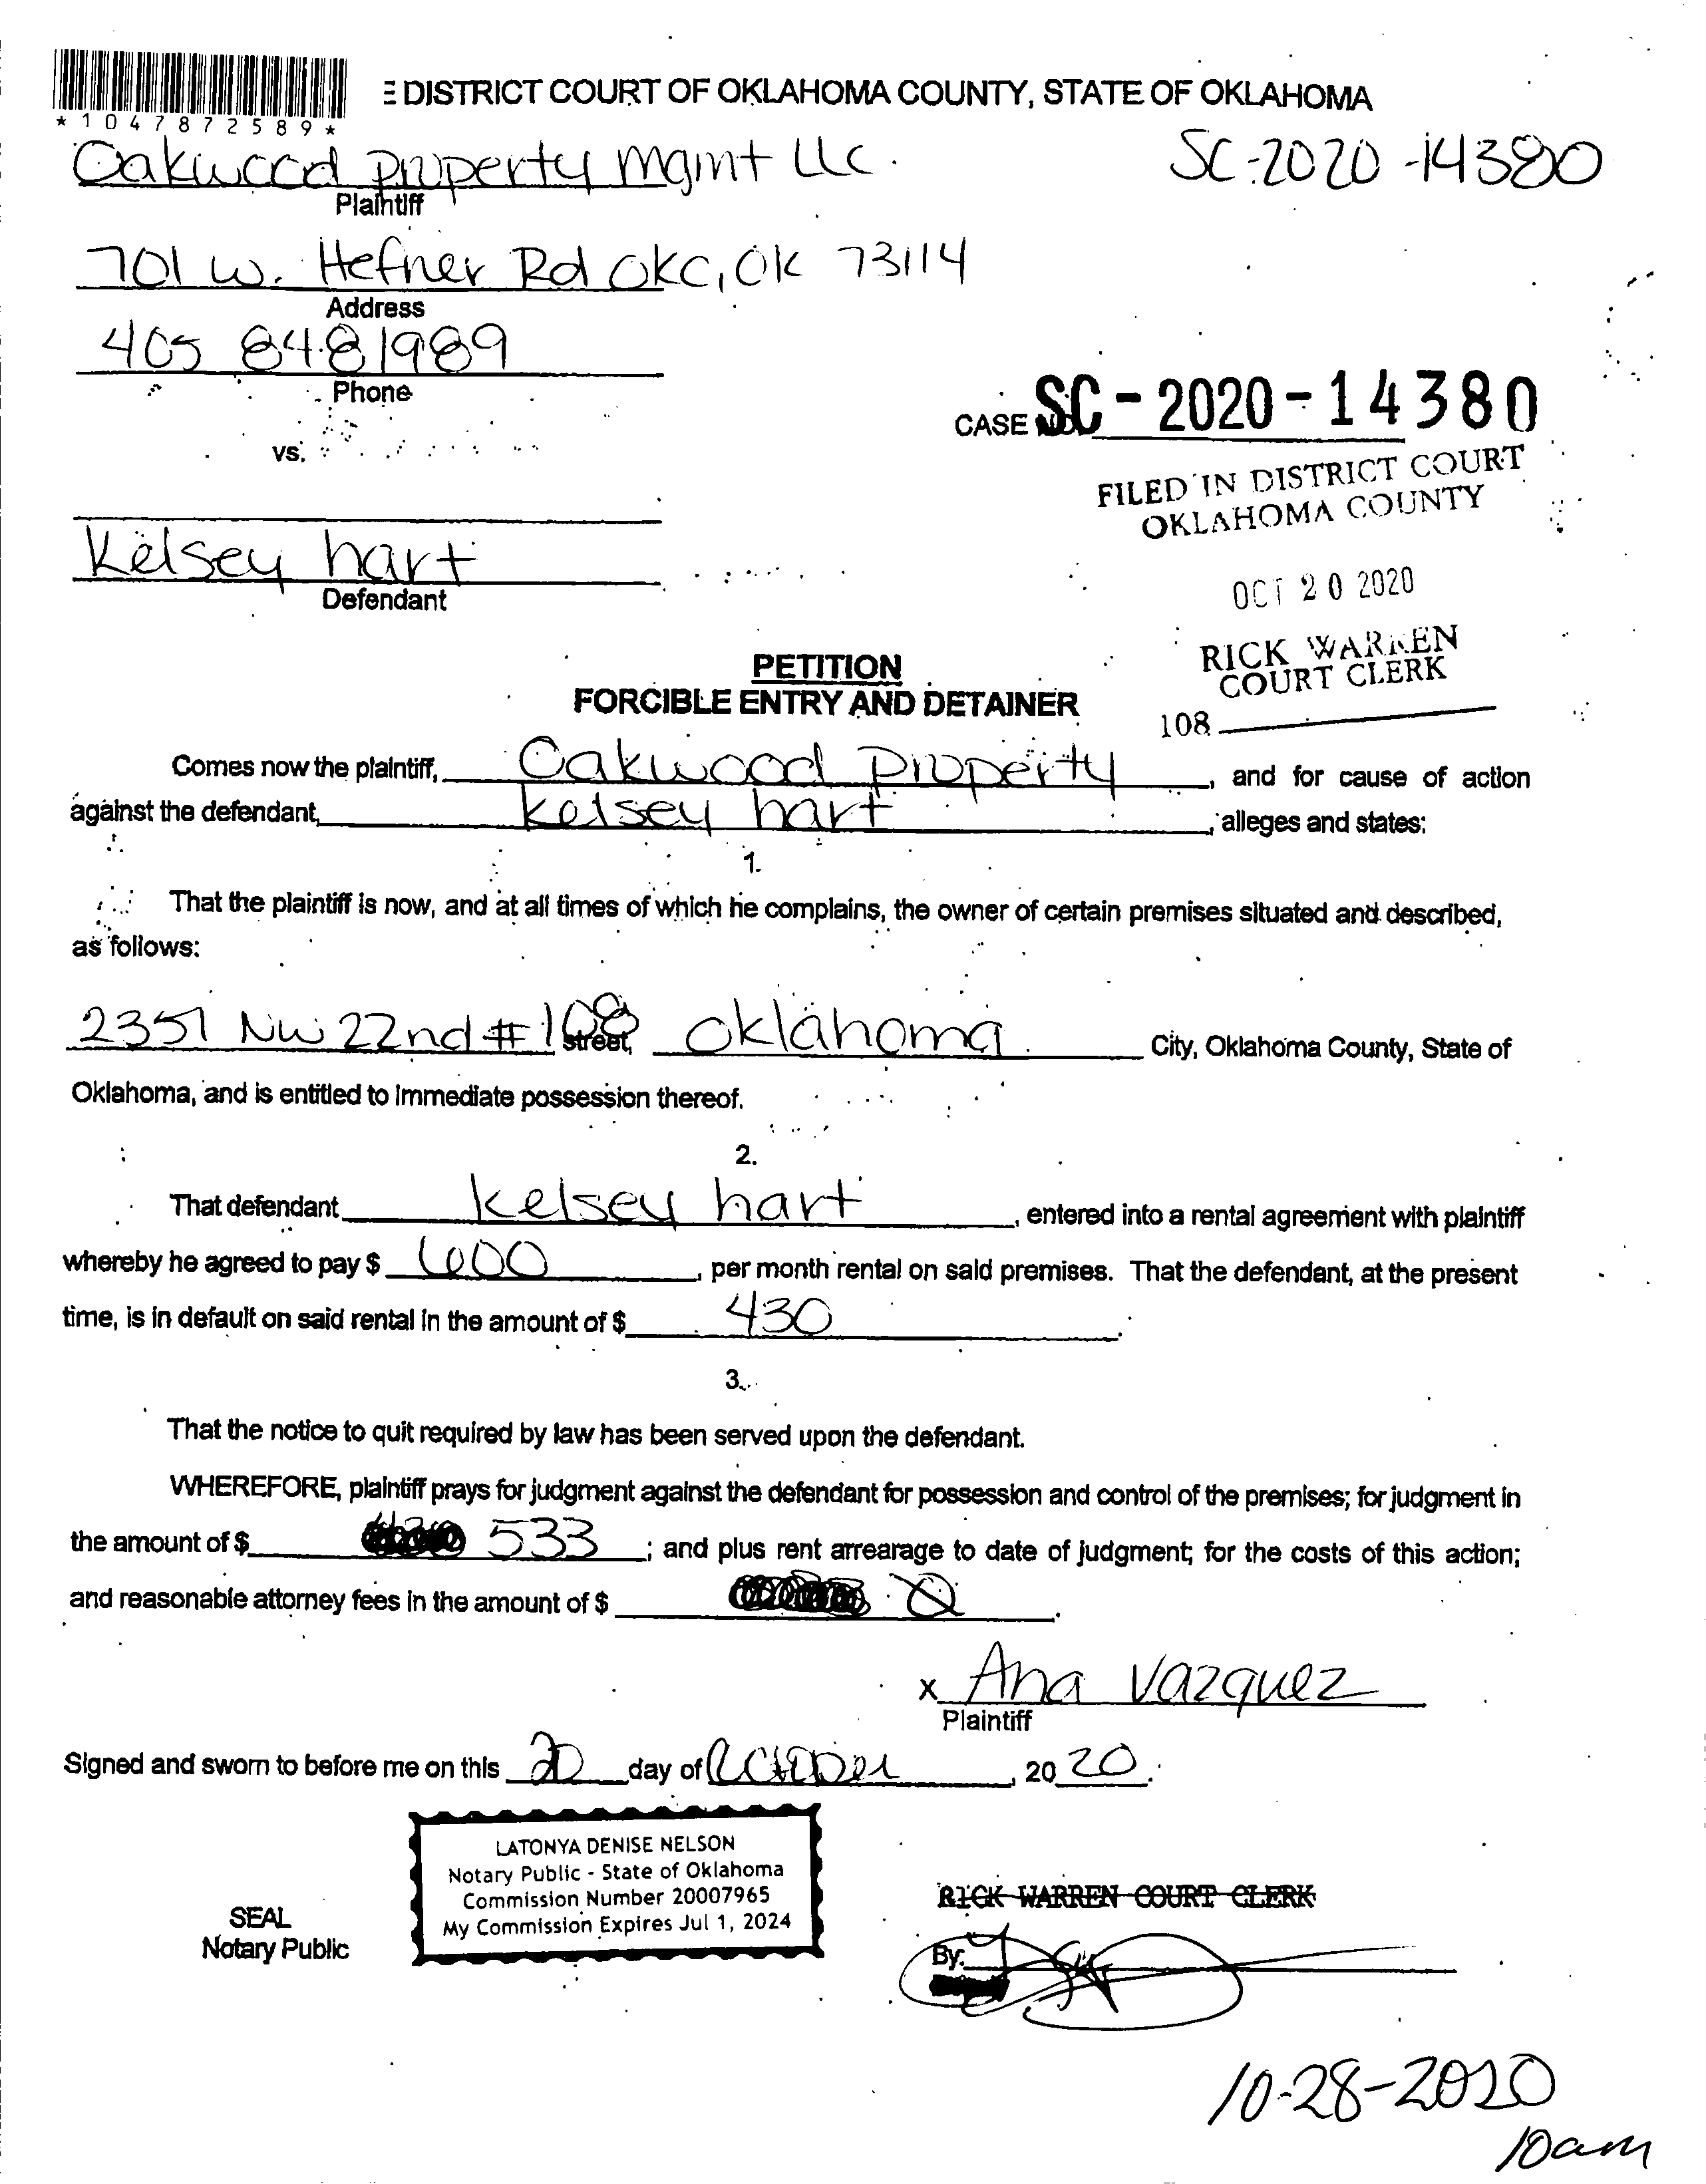 *1047872589*
E DISTRICT COURT OF OKLAHOMA COUNTY, STATE OF OKLAHOMA
Oakwood Property Mgmt LLC.
SC-2020-14380
Plaintiff
701 W. Hefner Rd OKC, OK 73114
Address
405 848 1989
Phone
CASE NO. SC-2020-14380
vs.
FILED IN DISTRICT COURT
OKLAHOMA COUNTY
Kelsey hart
Defendant
OCT 20 2020
RICK WARREN
COURT CLERK
108
PETITION
FORCIBLE ENTRY AND DETAINER
Comes now the plaintiff, Oakwood Property, and for cause of action
against the defendant, Kelsey hart, alleges and states:
1.
That the plaintiff is now, and at all times of which he complains, the owner of certain premises situated and described,
as follows:
2351 NW 22nd #108 street, Oklahoma City, Oklahoma County, State of
Oklahoma, and is entitled to immediate possession thereof.
2.
That defendant Kelsey hart, entered into a rental agreement with plaintiff
whereby he agreed to pay $ 600, per month rental on said premises. That the defendant, at the present
time, is in default on said rental in the amount of $ 430.
3.
That the notice to quit required by law has been served upon the defendant.
WHEREFORE, plaintiff prays for judgment against the defendant for possession and control of the premises; for judgment in
the amount of $ 533; and plus rent arrearage to date of judgment; for the costs of this action;
and reasonable attorney fees in the amount of $ 0.
x Ana Vazquez
Plaintiff
Signed and sworn to before me on this 20 day of October, 2020.
LATONYA DENISE NELSON
Notary Public - State of Oklahoma
Commission Number 20007965
My Commission Expires Jul 1, 2024
SEAL
Notary Public
RICK WARREN COURT CLERK
By:
10-28-2020
10am